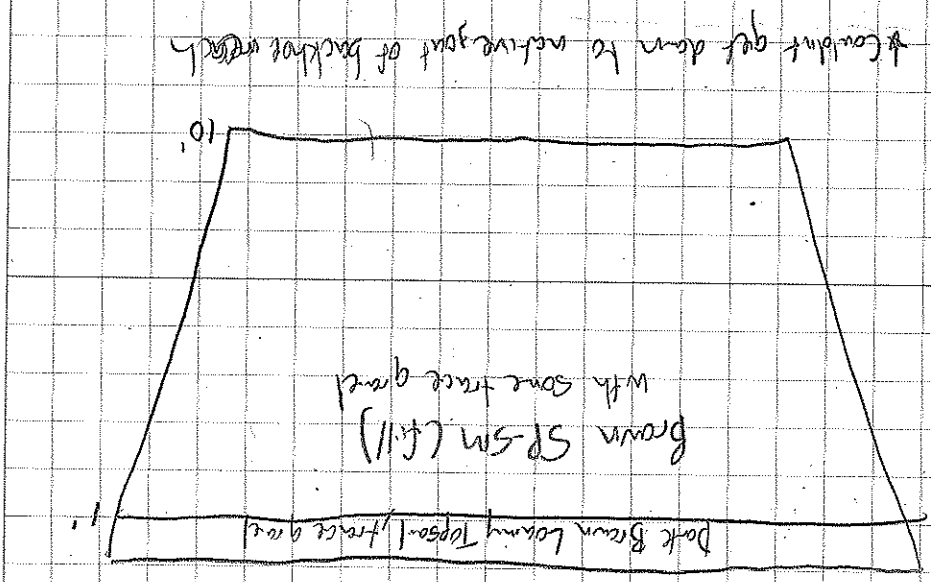 Dark Brown Loamy Topsoil, trace gravel
1'
Brown SP-SM (fill)
with some trace gravel
10'
* Couldnt get down to native, out of backhoe reach